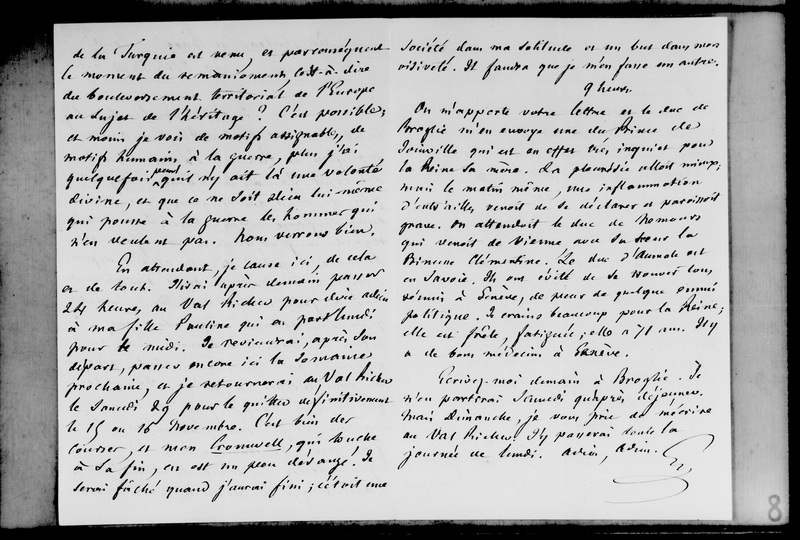 de la Turquie est venu, et parconséquent
le moment du remaniement, c'est-à-dire
du bouleversement territorial de l'Europe
au sujet de l'héritage ? C'est possible ;
et moins je vois de motifs assignables, de
motifs humains à la guerre, plus j'ai
quelquefois peur qu'il n'y ait là une volonté
divine, et que ce ne soit Dieu lui-même
qui pousse à la guerre les hommes qui
n'en veulent pas. Nous verrons bien.
En attendant, je cause ici, de cela
et de tout. J'irai après demain passer
24 heures, au Val Richer pour dire adieu
à ma fille Pauline qui en part lundi
pour le midi. Je reviendrai, après son
départ, passer encore ici la semaine
prochaine, et je retournerai au Val Richer
le Samedi 29 pour le quitter définitivement
le 15 ou 16 Novembre. C'est bien des
courses, et mon Cromwell, qui touche
à sa fin, en est un peu dérangé. Je
serai fâché quand j'aurai fini ; c'était une
société dans ma solitude et un but dans mon
oisiveté. Il faudra que je m'en fasse un autre.
9 heures.
On m'apporte votre lettre et le duc de
Broglie m'en envoye une du Prince de
Joinville qui est en effet très inquiet pour
la Reine sa mère. La pleurésie alloit mieux ;
mais le matin même, une inflammation
d'entrailles venoit de se déclarer et paroissoit
grave. On attendoit le duc de Nemours
qui venoit de Vienne avec sa sœur la
Princesse Clémentine. Le duc d'Aumale est
en Savoie. Ils ont évité de se trouver tous
réunis à Genève, de peur de quelque ennui
politique. Je crains beaucoup pour la Reine ;
elle est frêle, fatiguée ; elle a 71 ans. Il y
a de bons médecins à Genève.
Ecrivez-moi demain à Broglie. Je
n'en partirai Samedi qu'après déjeuner.
Mais Dimanche, je vous prie de m'écrire
au Val Richer. J'y passerai toute la
journée de lundi. Adieu, Adieu.
G
8